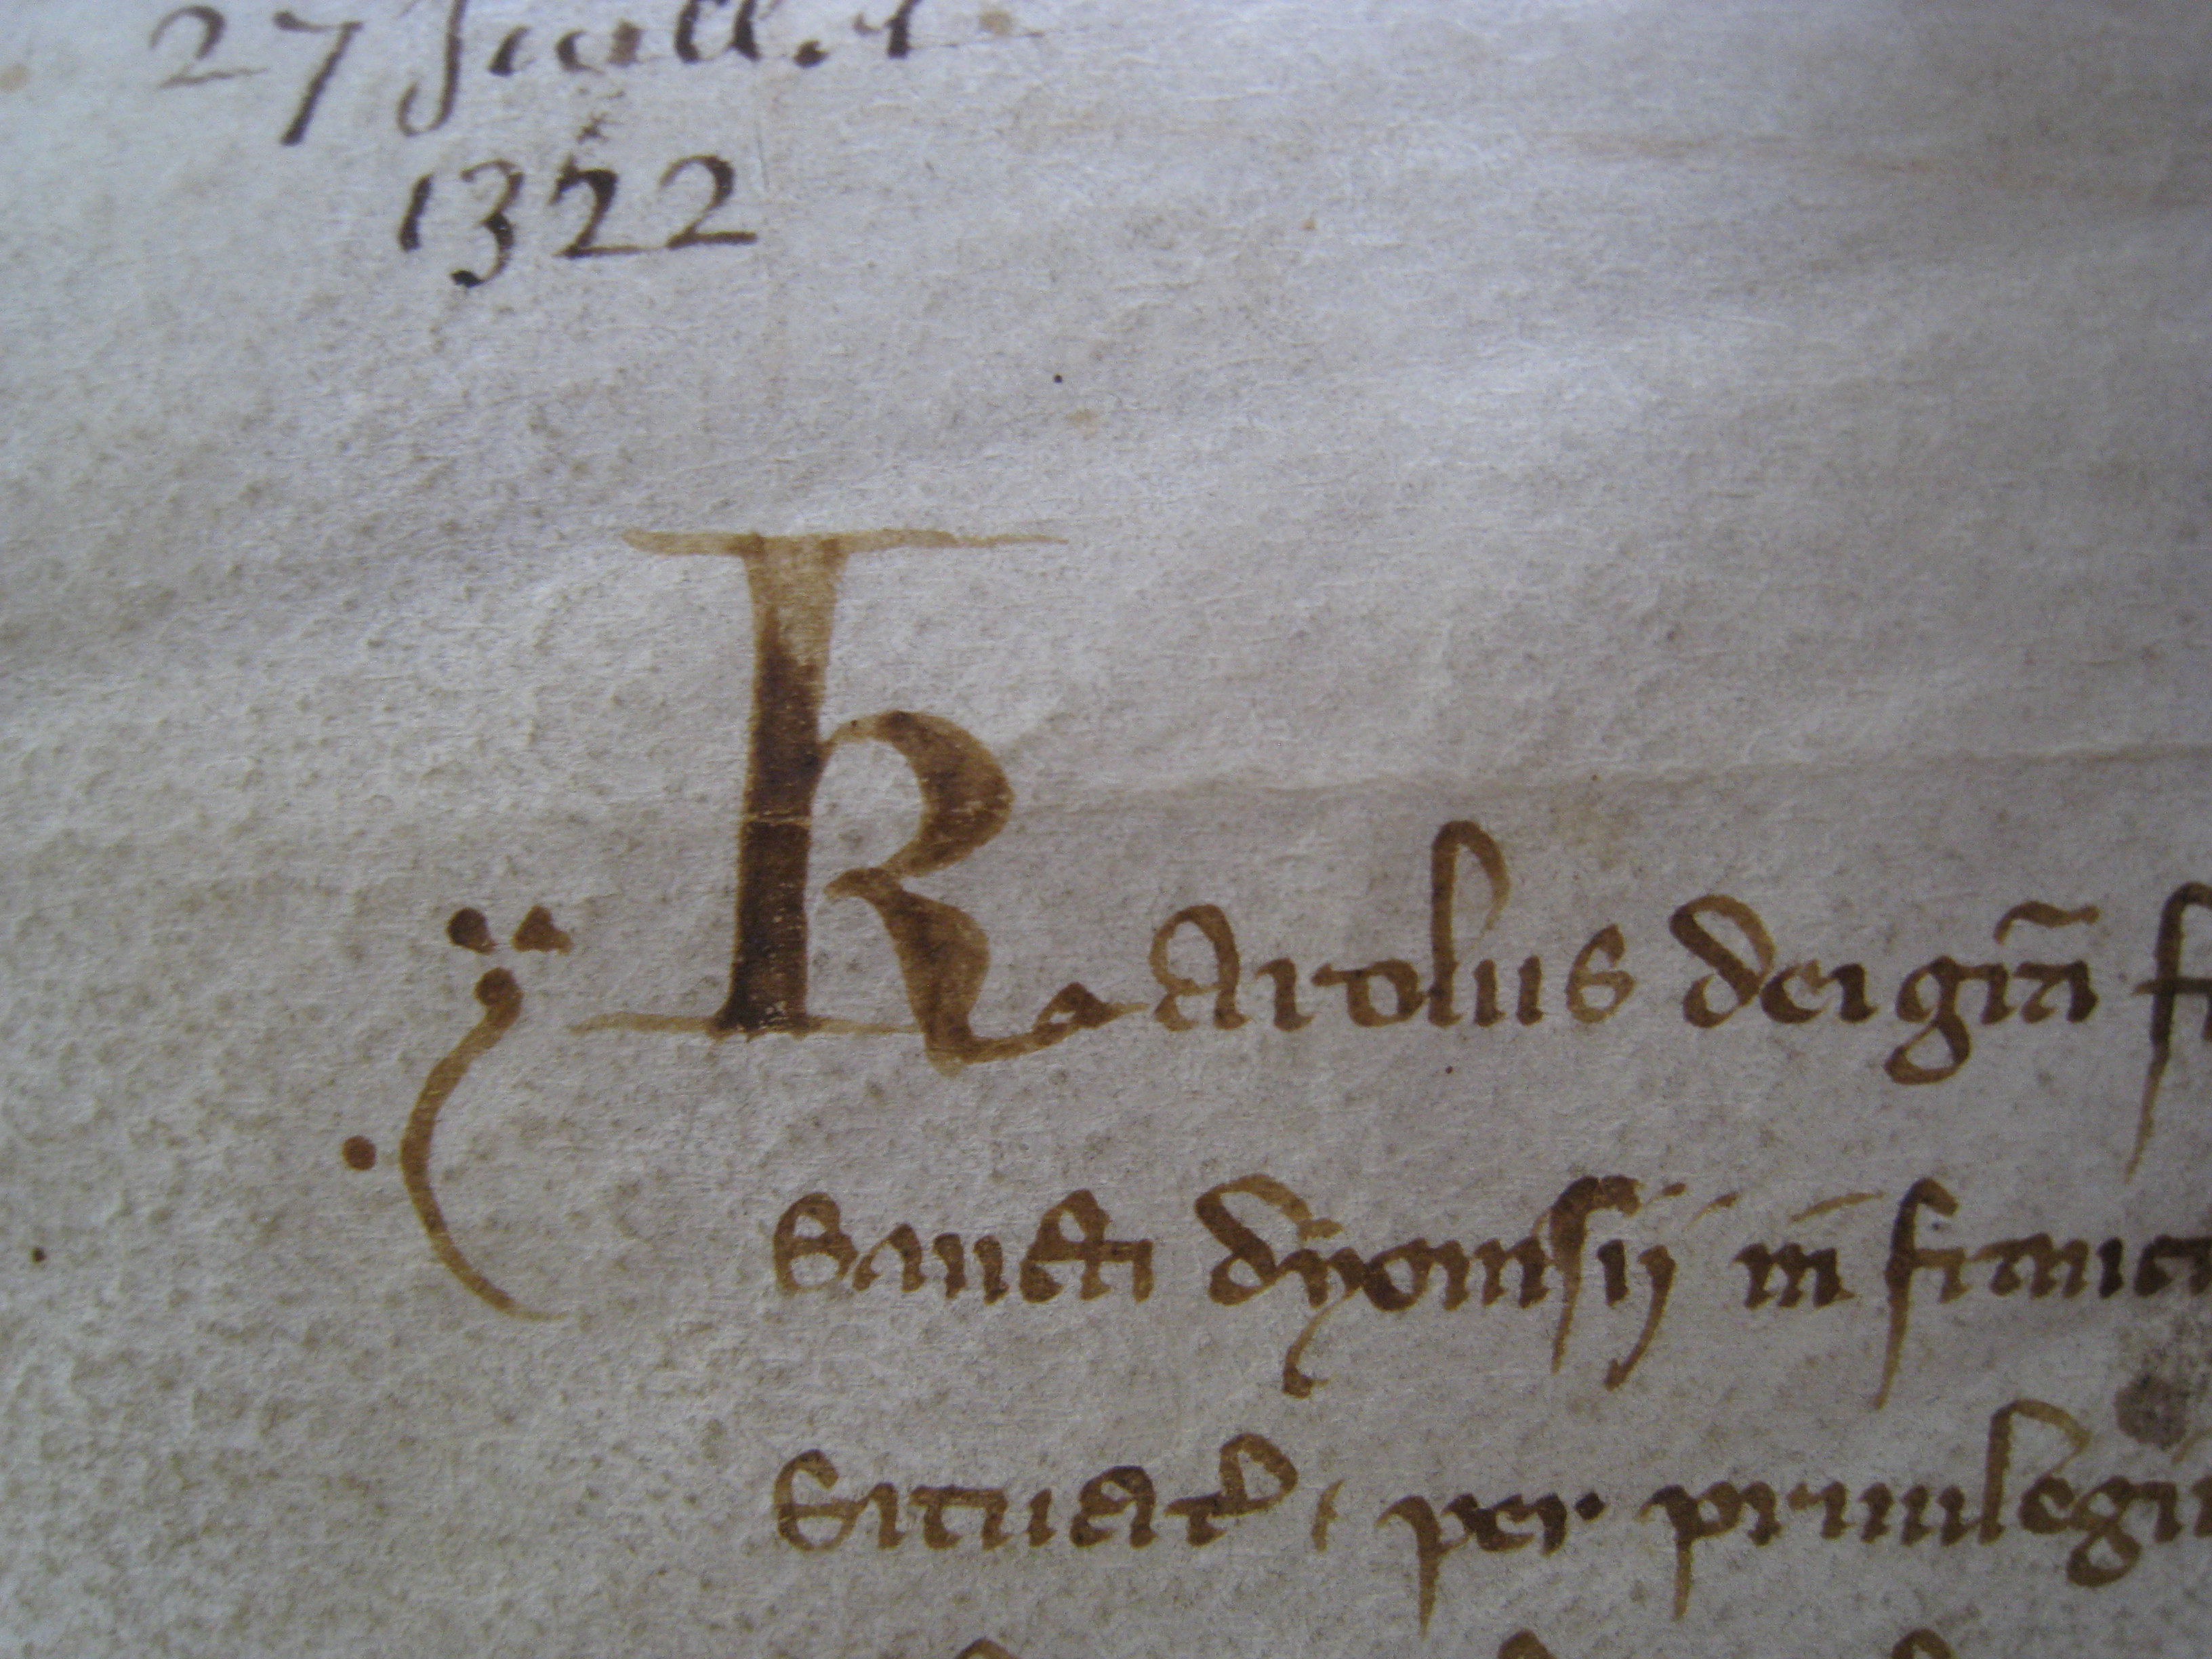 27 Juill.t
1322
Karolus dei gr̃a f
Sancti dyonisii in̄ franc
Situat per priuilegi